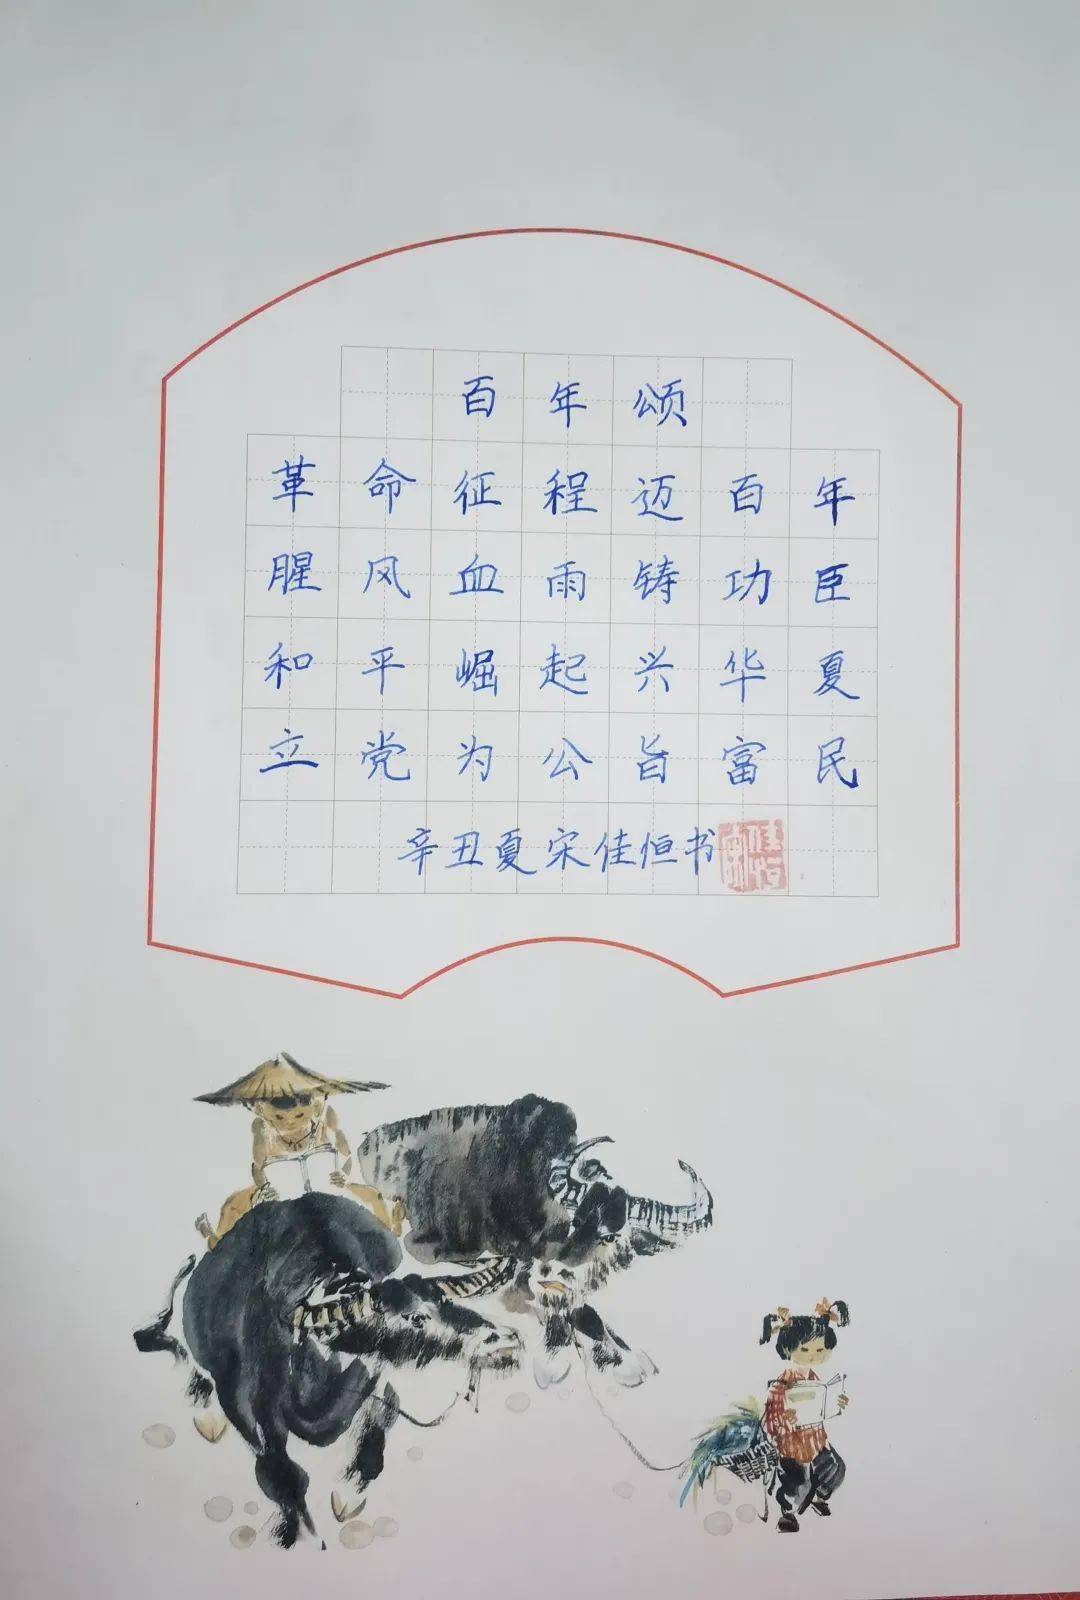 百年颂
革命征程迈百年
腥风血雨铸功臣
和平崛起兴华夏
立党为公旨富民
辛丑夏宋佳恒书
佳恒